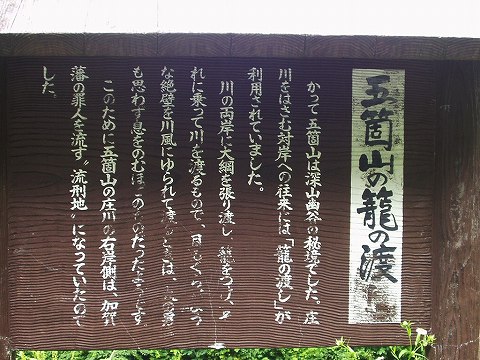 五箇山の籠の渡し
かって五箇山は深山幽谷の秘境でした。庄
川をはさむ対岸への往来には、「籠の渡し」が
利用されていました。
川の両岸に大綱を張り渡し、籠をつけ、そ
れに乗って川を渡るもので、目もくらむよう
な絶壁を川風にゆられて渡るときは、
も思わず息をのむほどのものだったそうです
このために五箇山の庄川の右岸側は、加賀
藩の罪人を流す〝流刑地〟になっていたので
した。